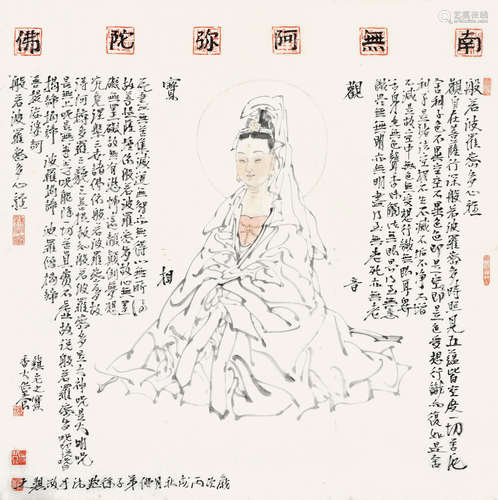 南無阿弥陀佛
般若波羅密多心經
觀自在菩薩行深般若波羅密多時照見五蘊皆空度一切苦厄
舍利子色不異空空不異色色即是空空即是色受想行識亦復如是舍
利子是諸法空相不生不滅不垢不淨不增
不減是故空中無色無受想行識無眼耳鼻
舌身意無色聲香味觸法無眼界乃至無意
識界無無明亦無無明盡乃至無老死亦無老
觀音
寶相
死盡無苦集滅道無智亦無得以無所得
故菩提薩埵依般若波羅密多故心無罣
礙無罣礙故無有恐怖遠離顛倒夢想
究竟涅槃三世諸佛依般若波羅密多故
得阿耨多羅三藐三菩提故知般若波羅密多是大神咒是大明咒
是無上咒是無等等咒能除一切苦真實不虛故說般若波羅密多咒即說咒曰
揭諦揭諦 波羅揭諦 波羅僧揭諦
菩提薩婆訶
般若波羅密多心經
鎮宅之寶
歲次丙申秋月佛弟子徐